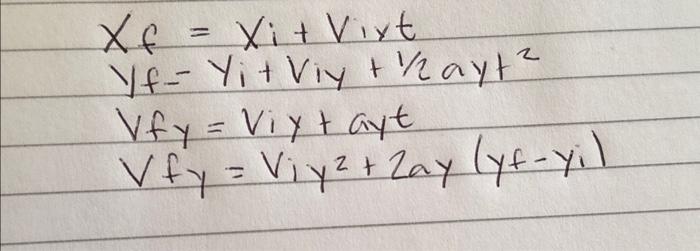 Xf = Xi + Vixt
yf = Yi + Viy + ½ ayt²
Vfy = Viy + ayt
Vfy = Viy² + 2ay (yf - yi)